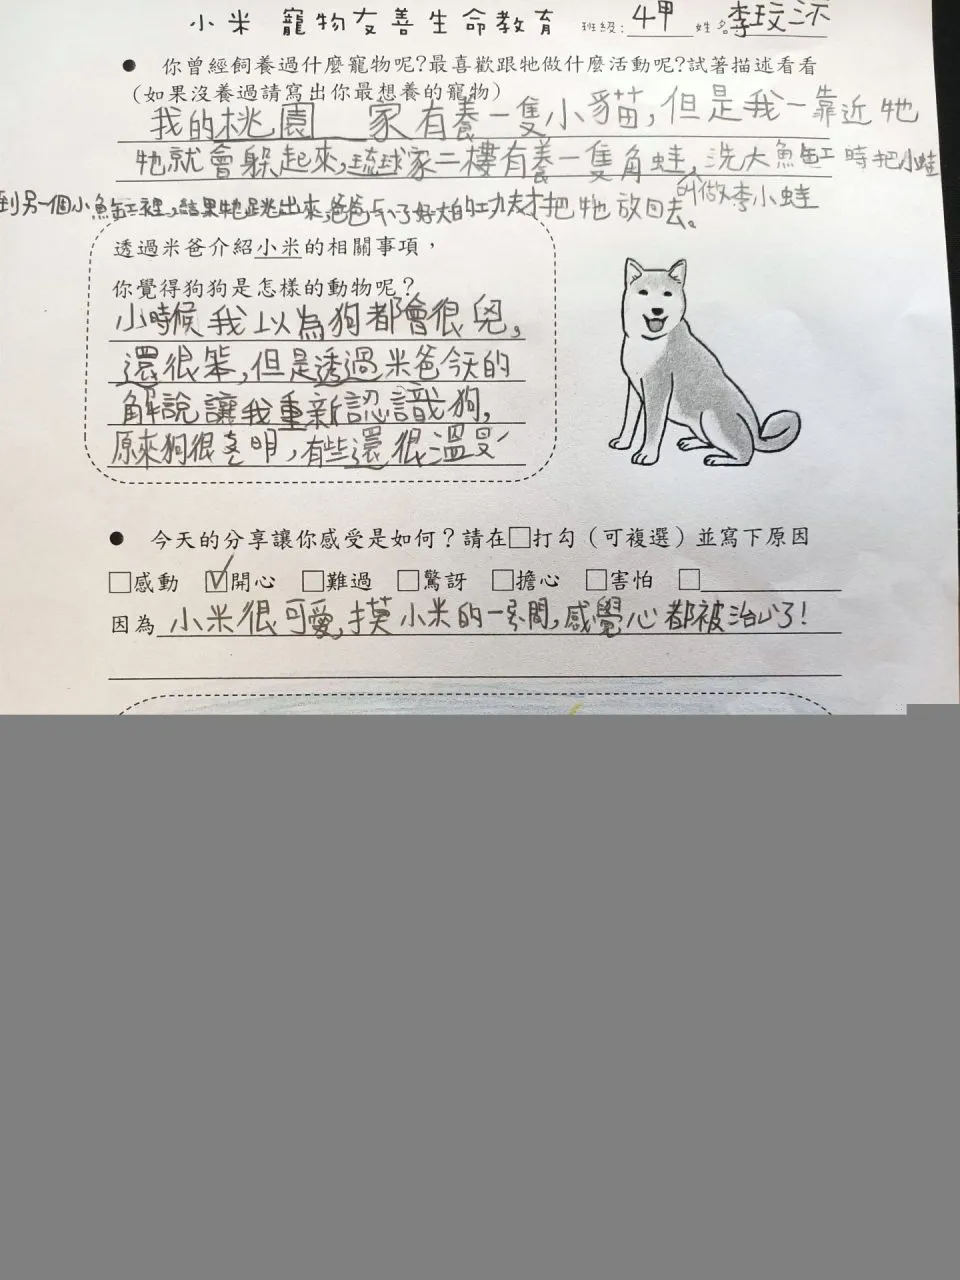 小米 寵物友善生命教育 班級：4甲 姓名 李玟
● 你曾經飼養過什麼寵物呢？最喜歡跟牠做什麼活動呢？試著描述看看
（如果沒養過請寫出你最想養的寵物）
我的桃園 家有養一隻小貓，但是我一靠近牠
牠就會躲起來，琉球家二樓有養一隻角蛙，洗大魚缸時把小蛙
叫做李小蛙
到另一個小魚缸裡，結果牠跳出來，爸爸 了好大的功夫才把牠放回去。
透過米爸介紹小米的相關事項，
你覺得狗狗是怎樣的動物呢？
小時候我以為狗都會很兇，
還很笨，但是透過米爸今天的
解說讓我重新認識狗，
原來狗很 明，有些還很溫
● 今天的分享讓你感受是如何？請在□打勾（可複選）並寫下原因
□感動 ☑開心 □難過 □驚訝 □擔心 □害怕 □
因為 小米很可愛，摸小米的 間，感覺心都被治 了！